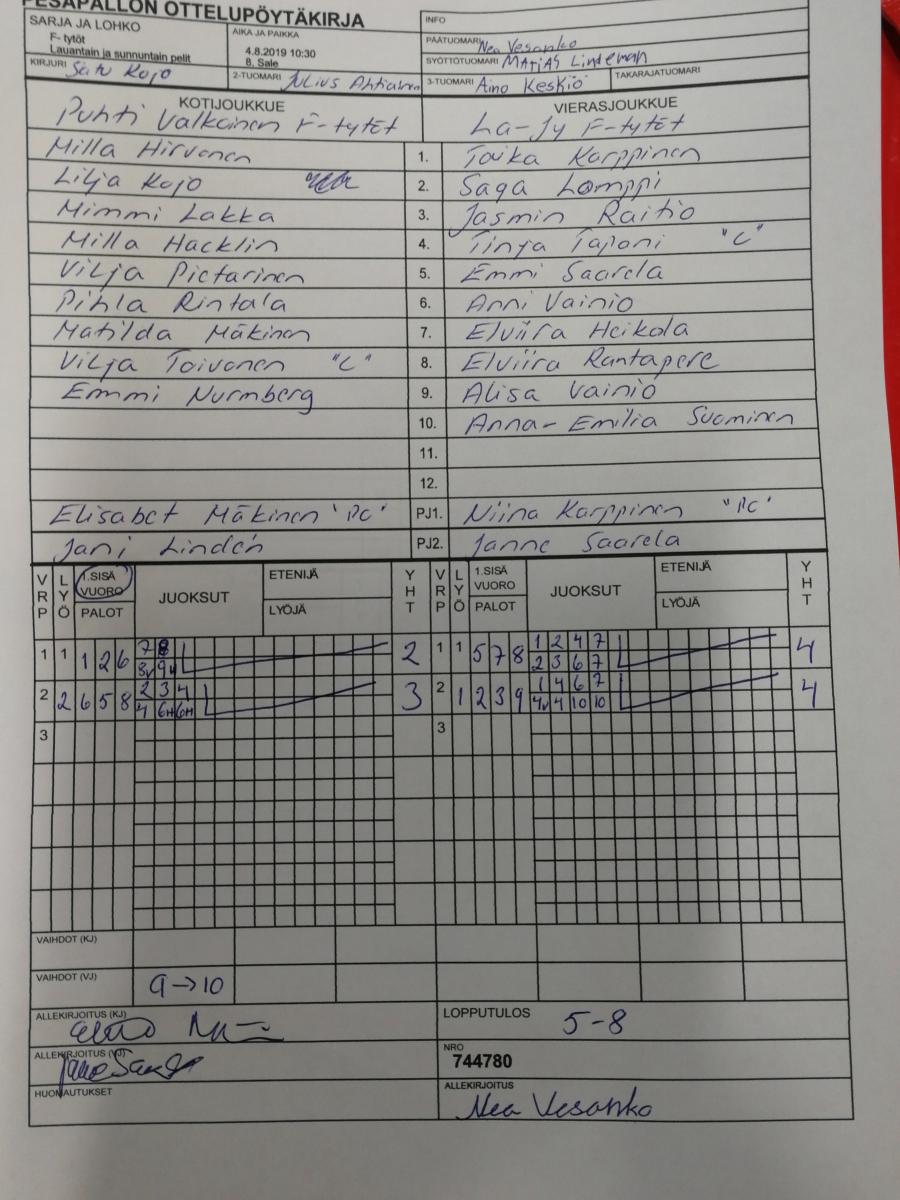 PESÄPALLON OTTELUPÖYTÄKIRJA
SARJA JA LOHKO
F- tytöt
Lauantain ja sunnuntain pelit
AIKA JA PAIKKA
4.8.2019 10:30
8, Sale
INFO
PÄÄTUOMARI Nea Vesanko
SYÖTTÖTUOMARI MATIAS Lindeman
KIRJURI Satu Kojo
2-TUOMARI Julius Ahtiainen
3-TUOMARI Aino Keskiö
TAKARAJATUOMARI
KOTIJOUKKUE VIERASJOUKKUE
Puhti Valkoinen F-tytöt La-Jy F-tytöt
Milla Hirvonen 1. Toika Karppinen
Lilja Kojo 2. Saga Lomppi
Mimmi Lakka 3. Jasmin Raitio
Milla Hacklin 4. Tinja Taponi "C"
Vilja Pietarinen 5. Emmi Saarela
Pihla Rintala 6. Anni Vainio
Matilda Mäkinen 7. Elviira Heikola
Vilja Toivonen "C" 8. Elviira Rantapere
Emmi Nurmberg 9. Alisa Vainio
10. Anna-Emilia Suominen
11.
12.
Elisabet Mäkinen "PC" PJ1. Niina Karppinen "PC"
Jani Lindén PJ2. Janne Saarela
VRP LYÖ 1.SISÄ VUORO PALOT JUOKSUT ETENIJÄ LYÖJÄ YHT VRP LYÖ 1.SISÄ VUORO PALOT JUOKSUT ETENIJÄ LYÖJÄ YHT
1 1 1 2 6 7 8 2 1 1 5 7 8 1 2 4 7 4
3v 9v 2 3 6 7
2 2 6 5 8 2 3 4 3 2 1 2 3 9 1 4 6 7 4
4 6H 6H 4v 4 10 10
3 3
VAIHDOT (KJ)
VAIHDOT (VJ) 9→10
ALLEKIRJOITUS (KJ)
LOPPUTULOS 5-8
ALLEKIRJOITUS (VJ)
NRO
744780
HUOMAUTUKSET
ALLEKIRJOITUS
Nea Vesanko